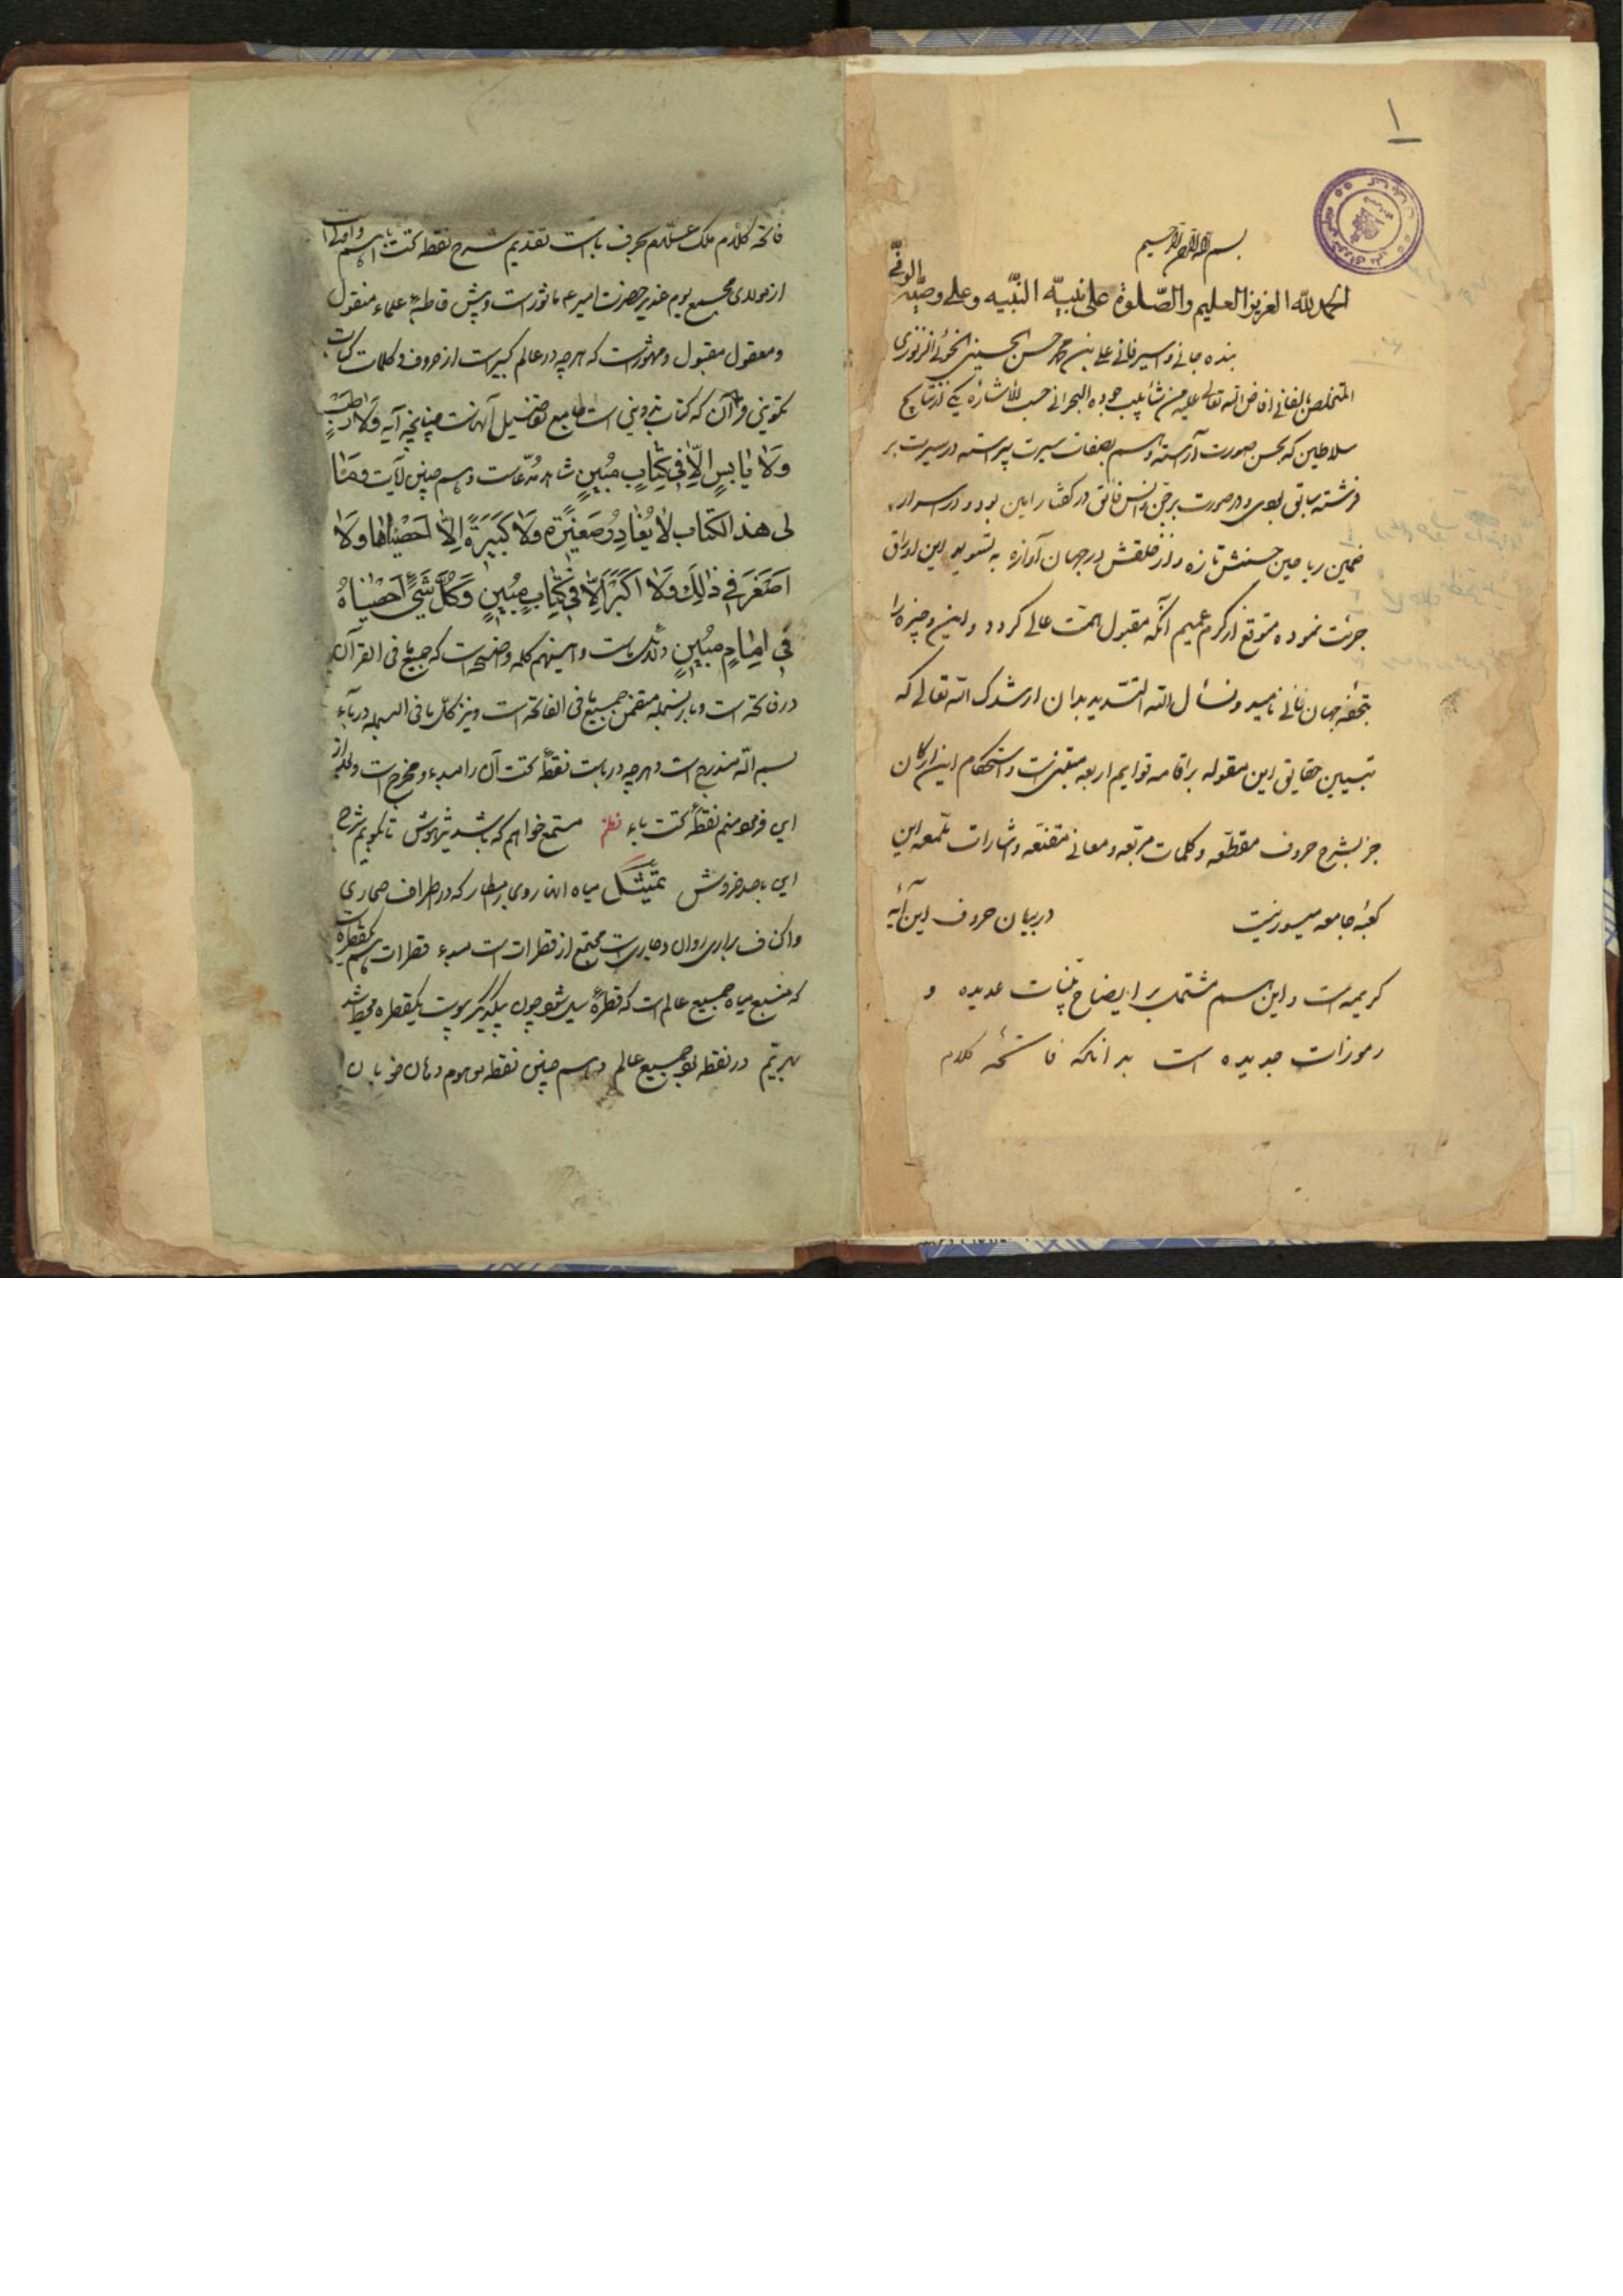 ۱
بسم الله الرحمن الرحیم
الحمد لله العزیز العلیم والصلوة علی نبیّه النّبیه و علی وصیّه الوفیّ
بنده جانی و اسیر فانی علی بن محمد حسن الحسینی الخوئی الزنوزی
المتخلص بالفانی افاض الله تعالی علیه من شآبیب جوده البحرانی حسب الاشاره یکی از نتایج
سلاطین که بحسن صورت آراسته و هم بصفات سیرت پیراسته در سیرت بر
فرشته سابق بودی و در صورت بر جن و انس فائق در گفتار امین بود و در اسرار
ضمین ریاحین حسنش تازه و از خلقش در جهان آوازه به تسوید این اوراق
جرئت نموده متوقع از کرم عمیم آنکه مقبول همت عالی گردد و این وجیزه را
بتحفه جهان فانی نامید و نسأل الله التسدید بدان ارشدک الله تعالی که
تبیین حقایق این مقوله بر اقامه قوایم اربعه مبتنی است و استحکام این ارکان
جز بشرح حروف مقطعه و کلمات مربعه و معانی مقنعه و اشارات ملمعه این
کعبه جامعه میسور نیست در بیان حروف این آیه
کریمه است و این هم مشتمل بر ایضاح بینات عدیده و
رموزات جدیده است بدانکه فاتحه کلام
فاتحه کلام ملک علام بحرف باست تقدیم شرح نقطه تحت با هم و اولی است
از مولدی مجمع یوم غدیر حضرت امیر ع ماثور است و پیش قاطبه علماء منقول
و معقول مقبول و مشهور است که هرچه در عالم کبیر است از حروف و کلمات کتاب
تکوینی قرآن که کتاب تدوینی است جامع تفاصیل آنهاست چنانچه آیه وَلا رَطْبٍ
وَلا یابِسٍ اِلّا فی کِتابٍ مُبینٍ شاهد مدّعاست و هم چنین آیت و مٰا
لی هذا الکتاب لا یُغادِرُ صَغیرَةً وَلا کَبیرَةً اِلّا اَحْصیٰها وَلا
اَصْغَرَ فی ذٰلِکَ وَلا اَکْبَرَ اِلّا فی کِتابٍ مُبینٍ وَکُلَّ شَیْءٍ اَحْصَیْناهُ
فی اِمامٍ مُبینٍ و اینهم کلمه واضحست که جمیع ما فی القرآن
در فاتحه است و با بسمله متضمن جمیع ما فی الفاتحه است و نیز کل ما فی البسمله در باء
بسم الله مندرج است و هرچه در باست نقطه تحت آن را مبدء و مخرج است
این فرمود منم نقطه تحت باء نظم مستمع خواهم که باشد تیزهوش تا بگویم شرح
این با صد خروش تمثیل میاه انهار وی امطار که در اطراف صحاری
و اکناف براری روان و جاریست مجتمع از قطرات است مبدء قطرات هم یکقطره است
که منبع میاه جمیع عالم است که قطره سیل شود چون بیکدیگر پیوست یکقطره محیط شد
بهر یتیم در نقطه بود جمیع عالم و هم چنین نقطه موهوم دهان خوبان